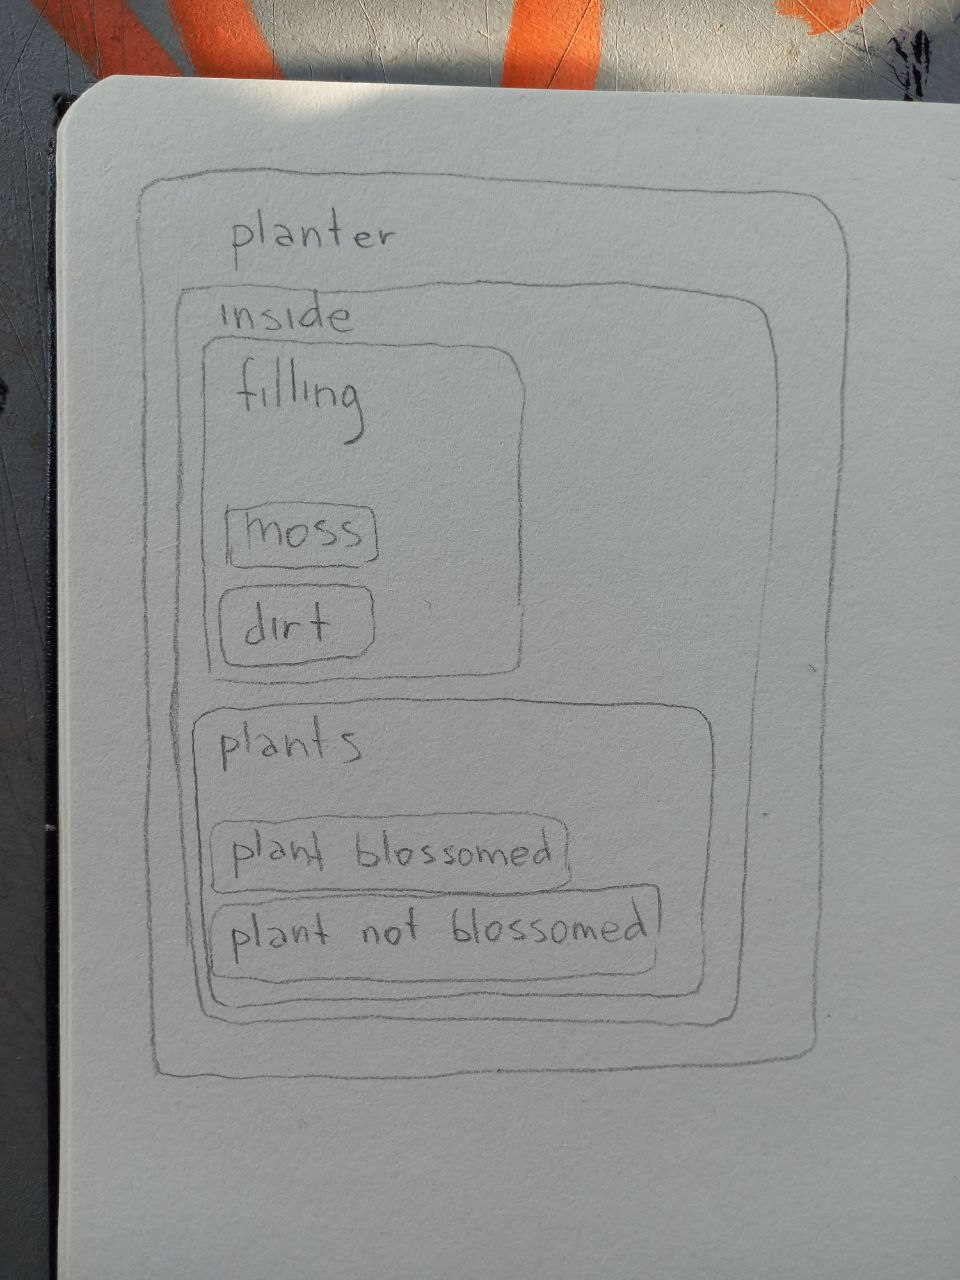 planter
inside
filling
moss
dirt
plants
plant blossomed
plant not blossomed